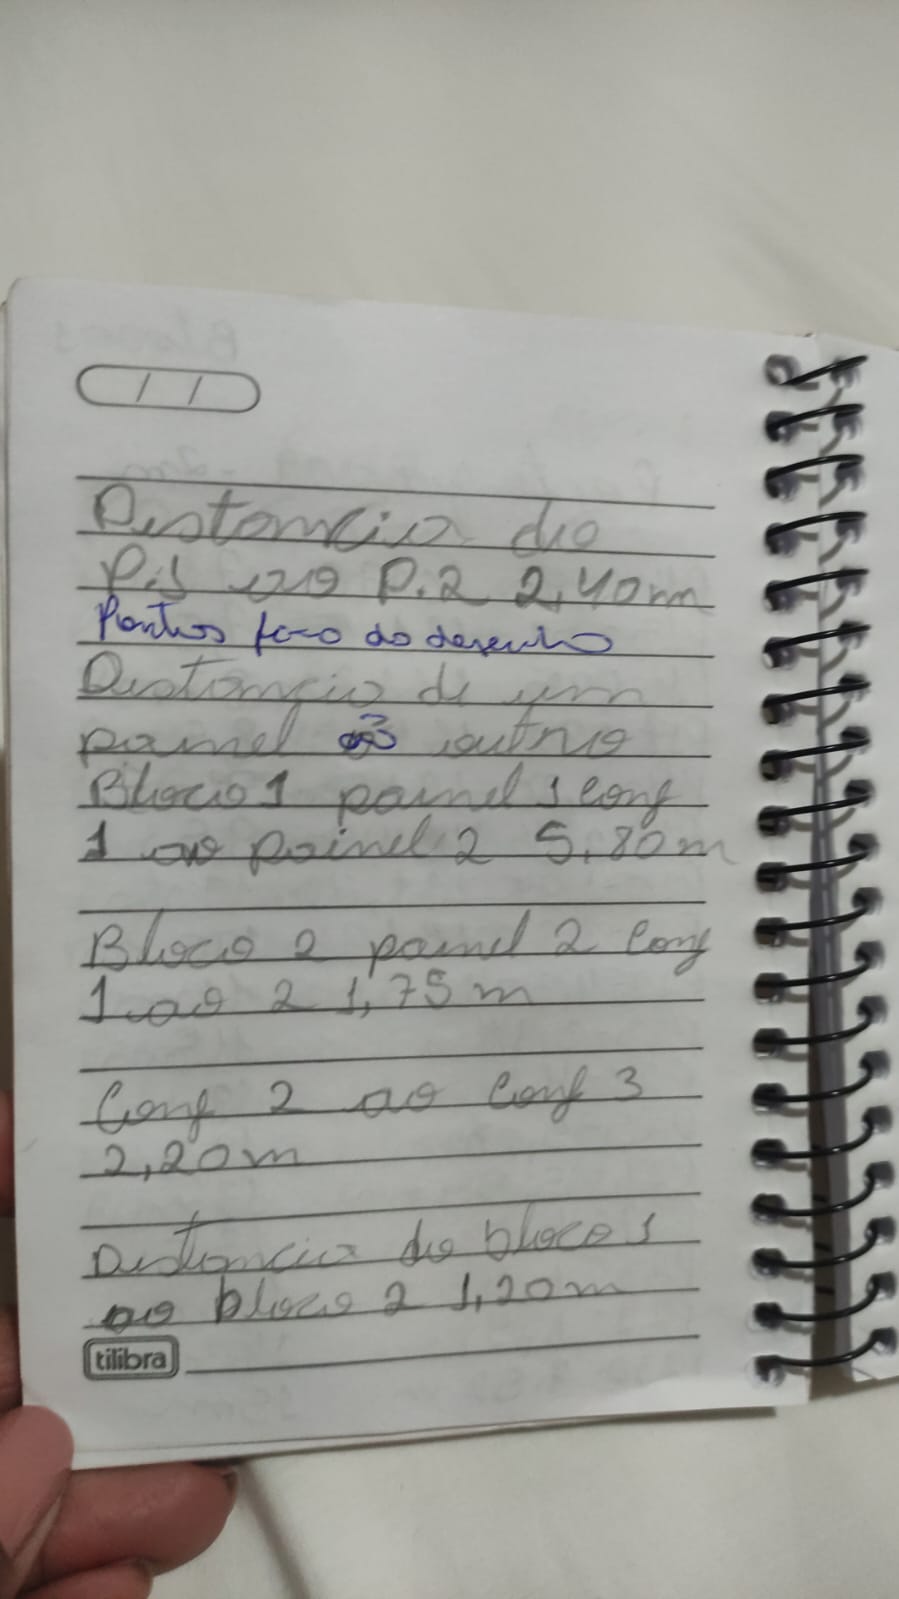 / /
Distancia do
P.1 ao P.2 2,40m
Pontos fora do desenho
Distancia de um
painel ao outro
Bloco 1 painel 1 Conf
1 ao painel 2 5,80m
Bloco 2 painel 2 Conf
1 ao 2 1,75m
Conf 2 ao Conf 3
2,20m
Distancia do bloco 1
ao bloco 2 1,20m
tilibra